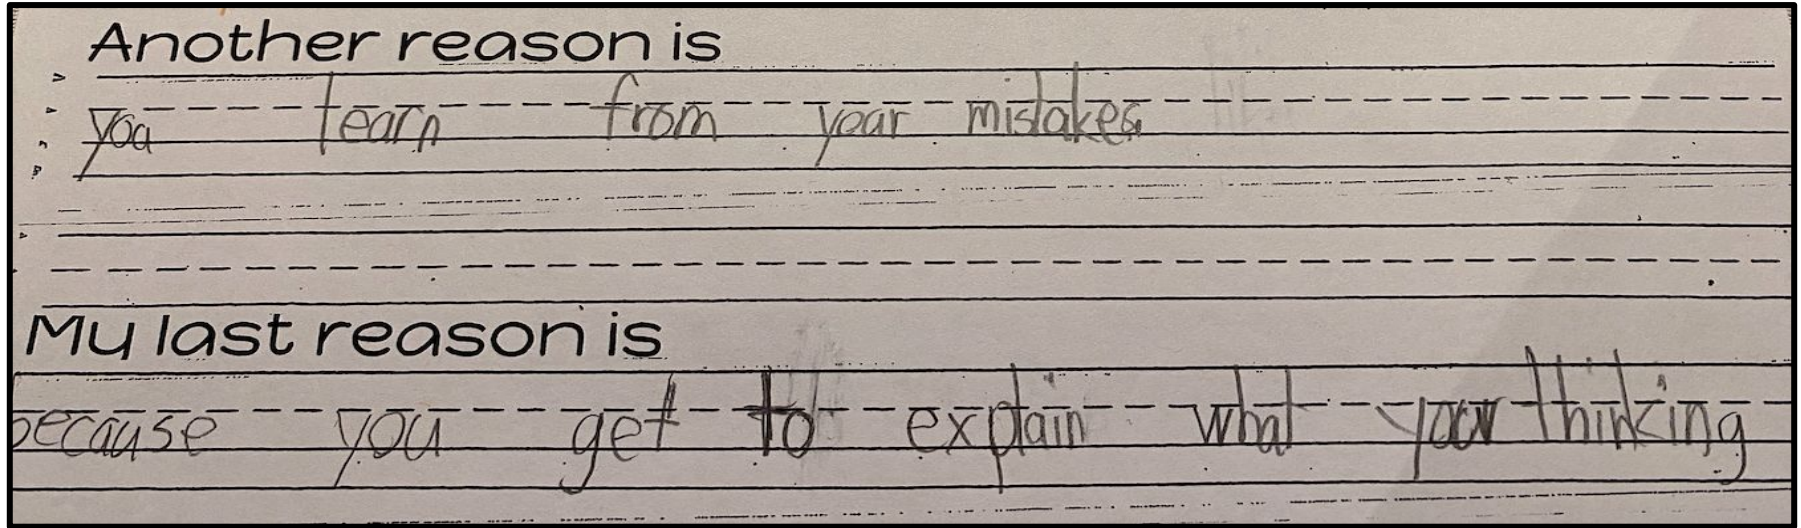 Another reason is
you learn from your mistakes.
My last reason is
because you get to explain what your thinking